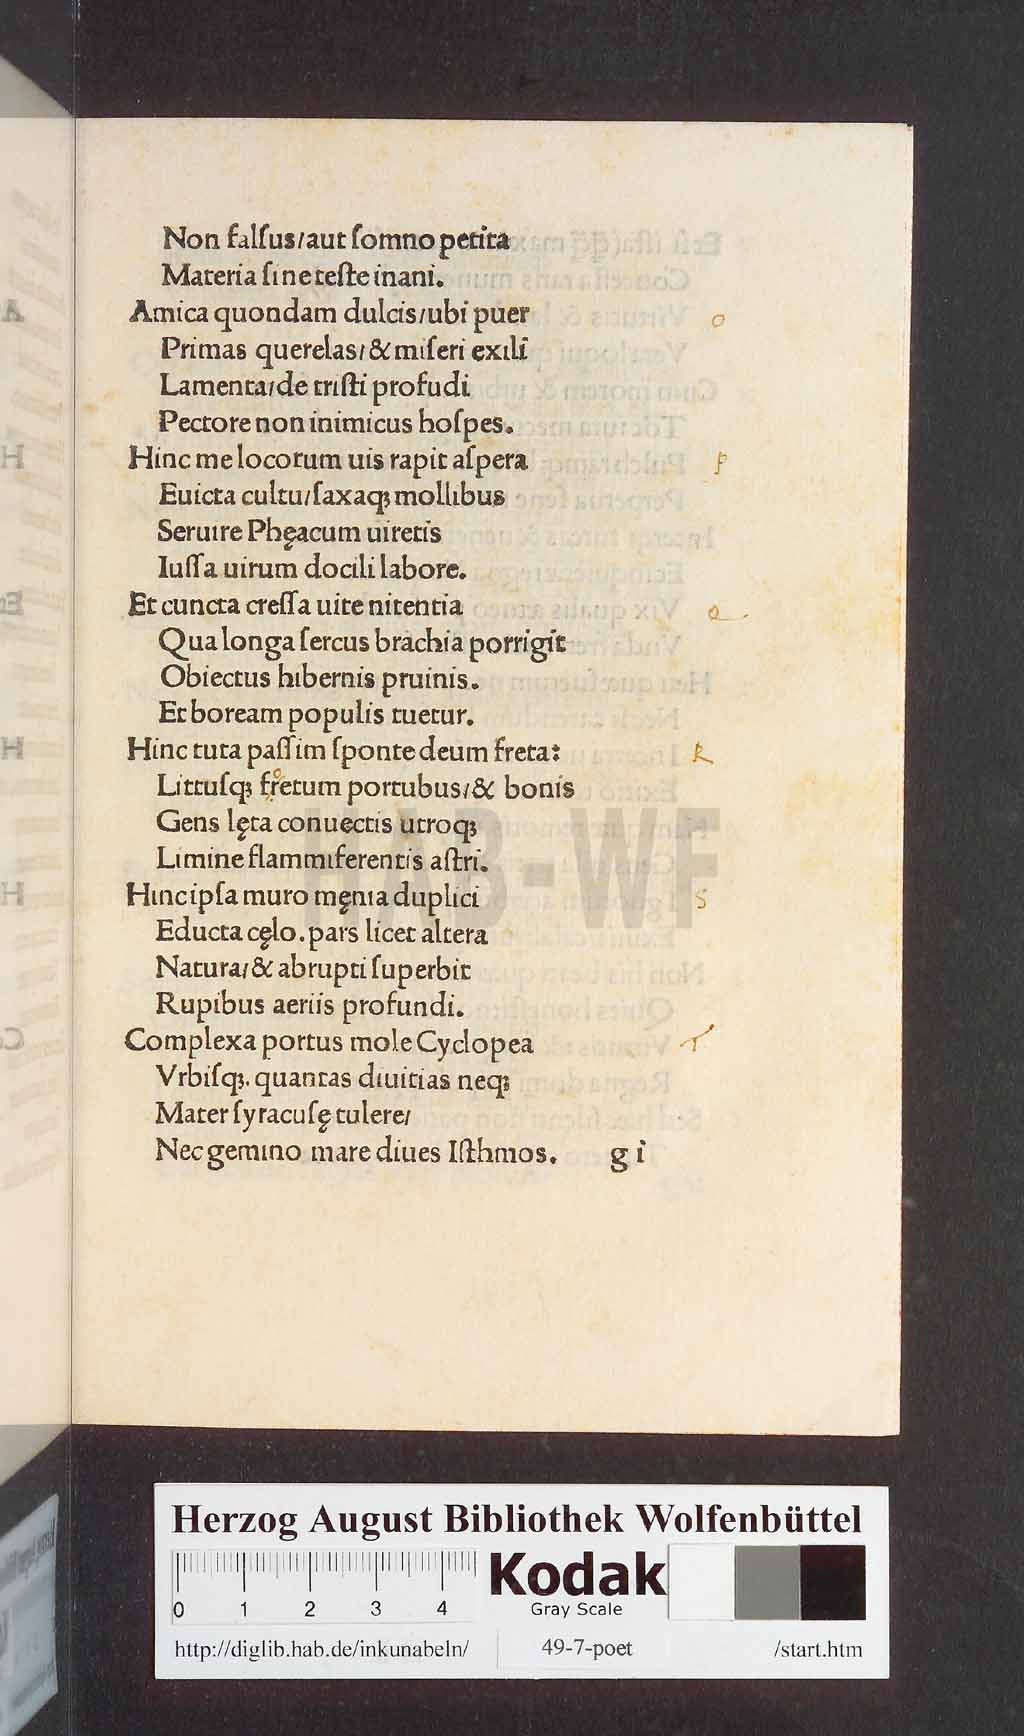 Non falſus/aut ſomno petita
Materia ſine teſte inani.
Amica quondam dulcis/ubi puer o
Primas querelas/& miſeri exili
Lamenta/de triſti profudi
Pectore non inimicus hoſpes.
Hinc me locorum uis rapit aſpera p
Euicta cultu/ſaxaqꝫ mollibus
Seruire Phęacum uiretis
Iuſſa uirum docili labore.
Et cuncta creſſa uite nitentia Q
Qua longa ſercus brachia porrigit
Obiectus hibernis pruinis.
Et boream populis tuetur.
Hinc tuta paſſim ſponte deum freta: R
Littuſqꝫ fretum portubus/& bonis
Gens lęta conuectis utroqꝫ
Limine flammiferentis aſtri.
Hinc ipſa muro męnia duplici S
Educta cęlo. pars licet altera
Natura/& abrupti ſuperbit
Rupibus aeriis profundi.
Complexa portus mole Cyclopea T
Vrbiſqꝫ. quantas diuitias neqꝫ
Mater ſyracuſę tulere/
Nec gemino mare diues Iſthmos. g i
HAB-WF
Herzog August Bibliothek Wolfenbüttel
0 1 2 3 4
Kodak
Gray Scale
http://diglib.hab.de/inkunabeln/ 49-7-poet /start.htm